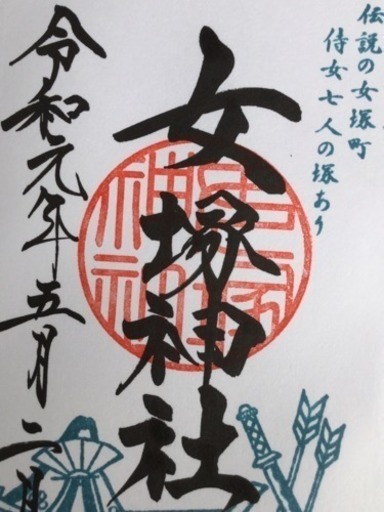 伝説の女塚町
侍女七人の塚あり
女塚神社
令和元年五月二日